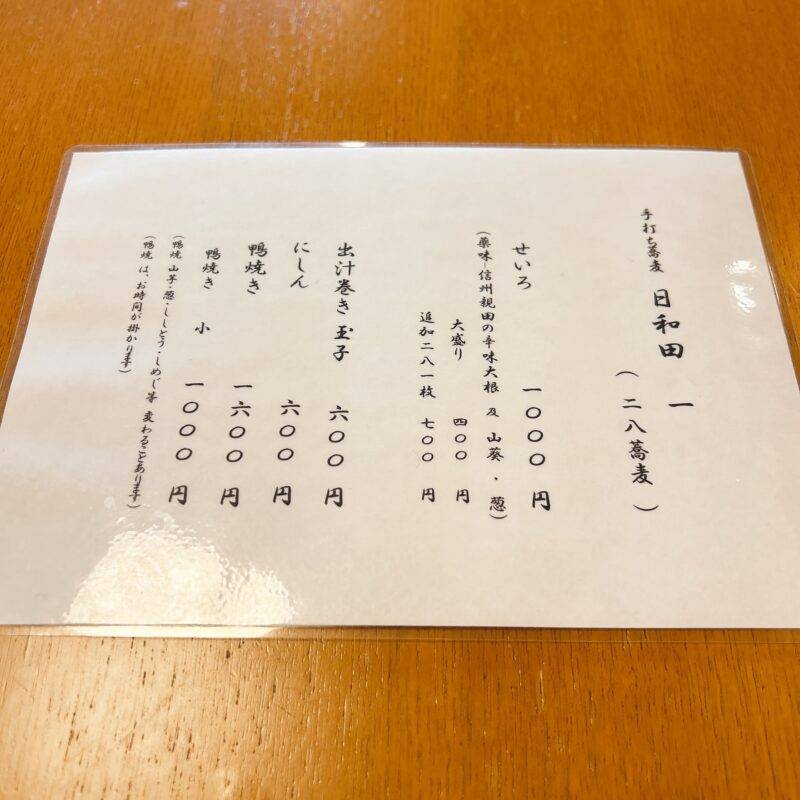 手打ち蕎麦 日和田 一
(二八蕎麦)
せいろ 一〇〇〇円
(薬味-信州親田の辛味大根 及 山葵・葱)
大盛り 四〇〇円
追加二八一枚 七〇〇円
出汁巻き玉子 六〇〇円
にしん 六〇〇円
鴨焼き 一六〇〇円
鴨焼き 小 一〇〇〇円
(鴨焼 山芋・葱・ししとう・しめじ等 変わることあります)
(鴨焼 は、お時間が掛かります)